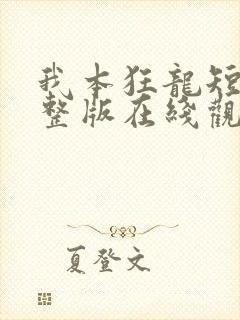 我本狂龍短
整版在綫觀
夏登文